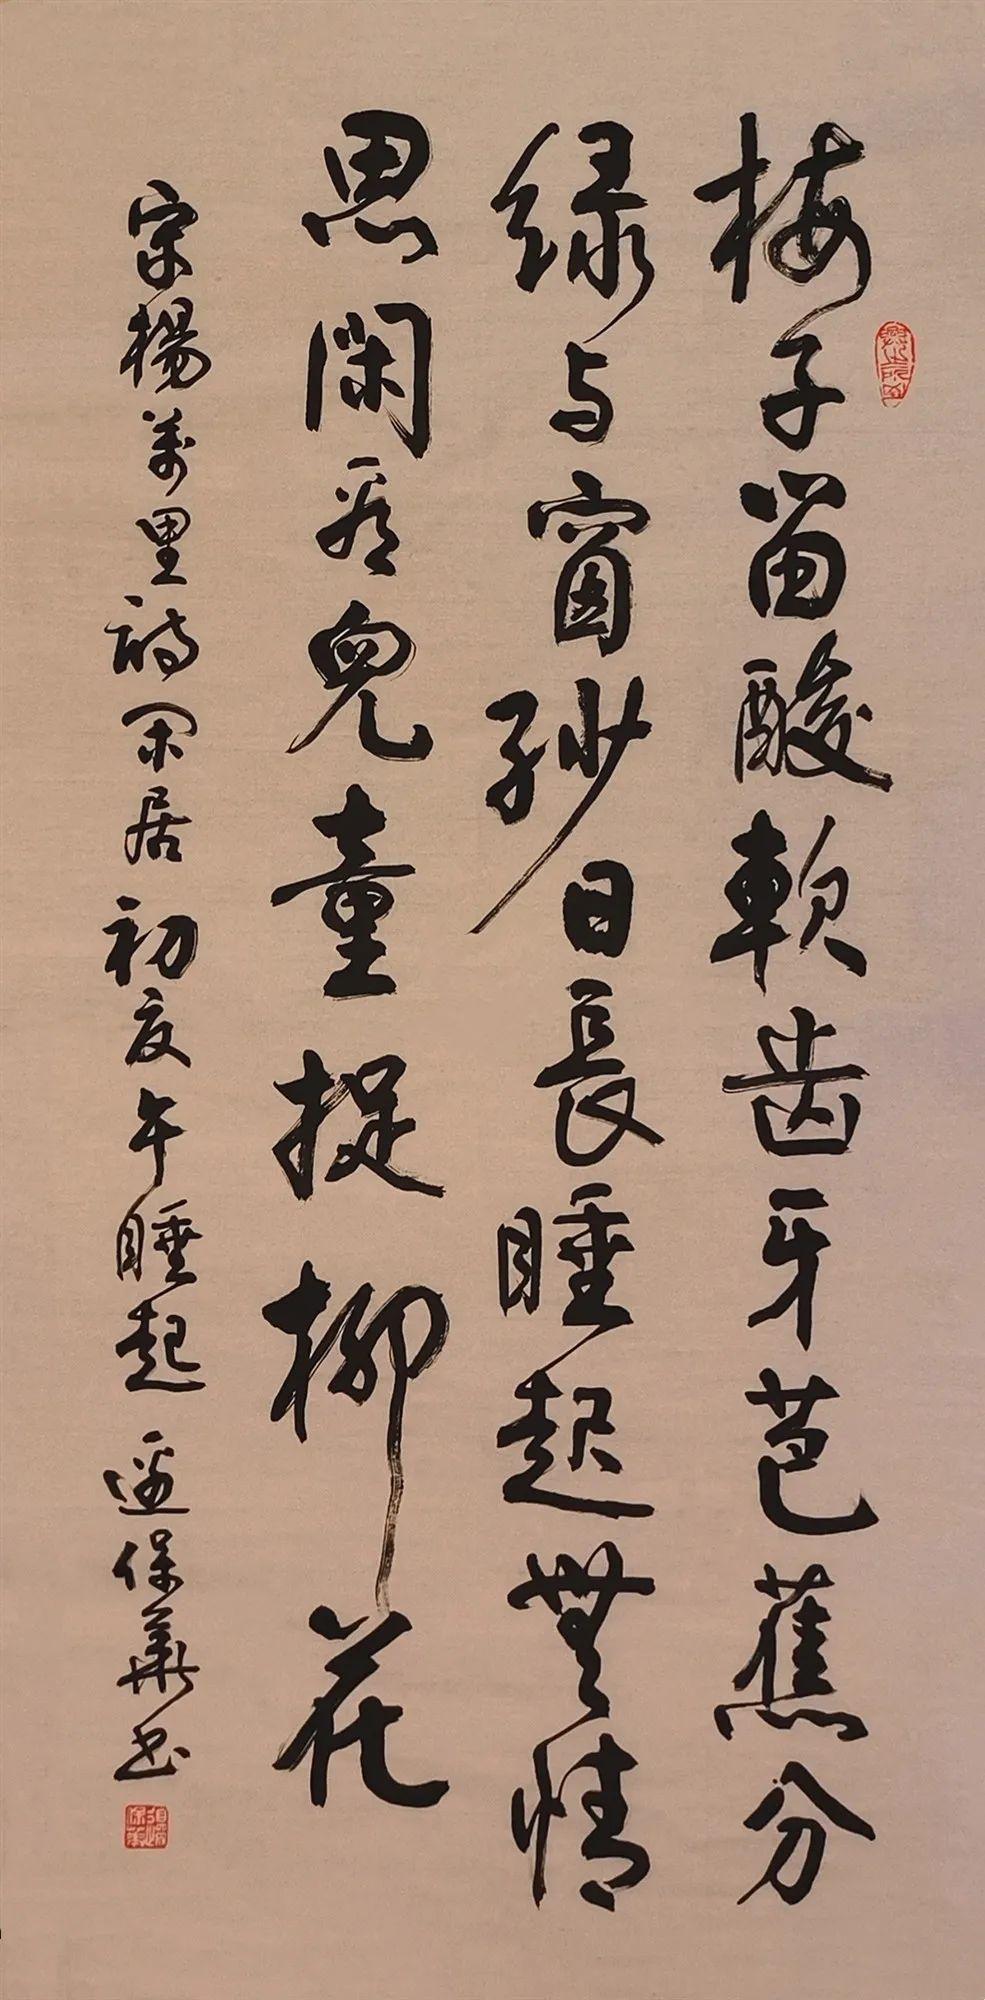 梅子留酸軟齿牙芭蕉分
绿与窗纱日長睡起無情
思閑看兒童捉柳花
宋楊萬里詩闲居初夏午睡起 保華书